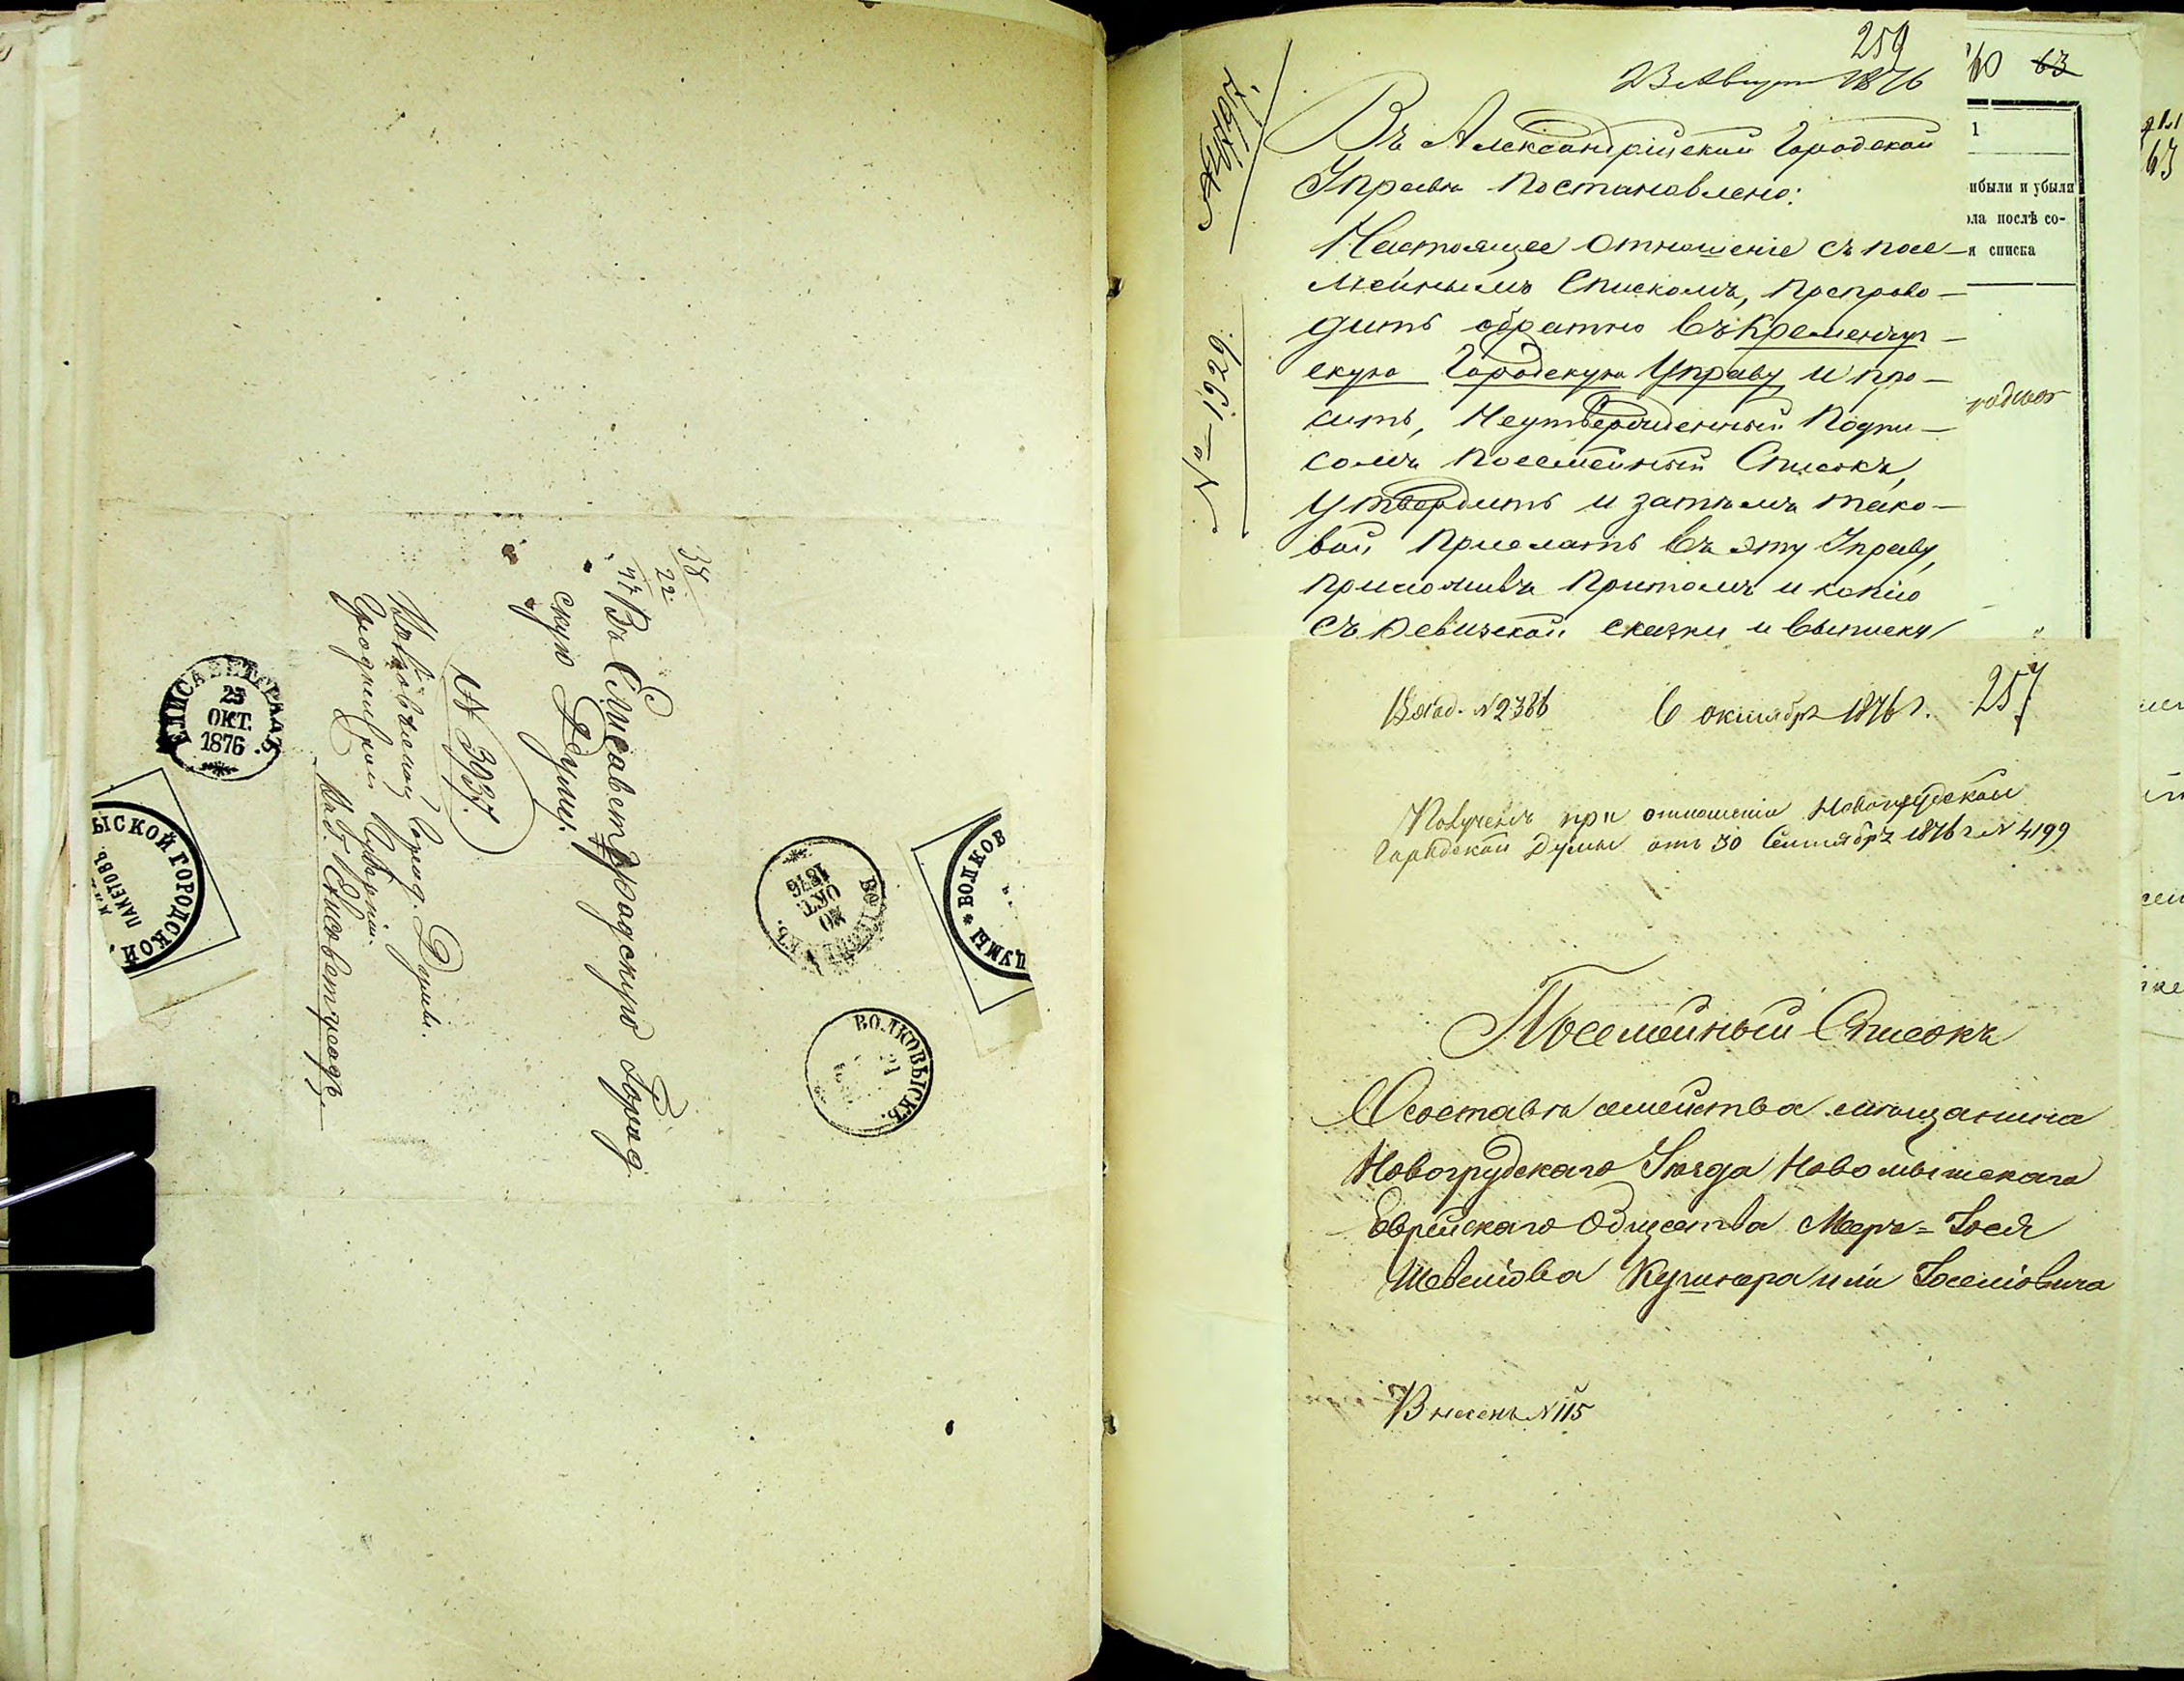 38
22
Въ Елисаветградскую Город
скую Думу.
N 3937.
Волковыской Город. Думы.
Гродненской Губерніи.
Нав. Елисаветградъ.
ЕЛИСАВЕТГРАДЪ
25
ОКТ.
1876
ЫСКОЙ ГОРОДСКОЙ
ПАКЕТОВЪ.
ВОЛКОВЫСКЪ.
20
ОКТ.
1876
ВОЛКОВ
ДУМЫ
ВОЛКОВЫСКЪ.
259
23 Августа 1876
№ 1626.
Въ Александрійской Городской
Управѣ Постановлено:
Настоящее отношеніе съ посе-
мейнымъ Спискомъ, препрово-
дить обратно въ Кременчуг-
скую Городскую Управу и про-
сить, Неутвержденный Подпи-
сомъ посемейный Списокъ,
Утвердить и затѣмъ тако-
вой Прислать въ эту Управу,
приложивъ притомъ и копію
съ Ревизской сказки и выписку
60 63
1
ибыли и убыли
ола послѣ со-
я списка
63
Вход. N 2386 6 октября 1876 г. 257
Полученъ при отношеніи Новогрудской
Городской Думы отъ 30 Сентября 1876 г N 4199
Посемейный Списокъ
О составѣ семейства мѣщанина
Новогрудскаго Уѣзда Новомышскаго
Еврейскаго Общества Мееръ-Іоселя
Шевеліова Кушнера или Іоселіовича
Внесенъ N 115